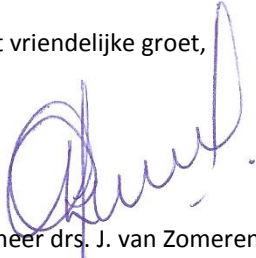 t vriendelijke groet,
neer drs. J. van Zomeren